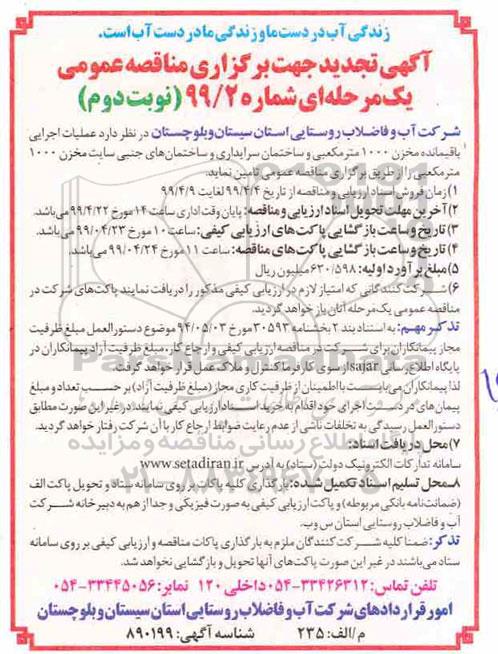 زندگی آب در دست ما و زندگی ما در دست آب است.
آگهی تجدید جهت برگزاری مناقصه عمومی
یک مرحله‌ای شماره ۹۹/۲ (نوبت دوم)
شرکت آب و فاضلاب روستایی استان سیستان وبلوچستان در نظر دارد عملیات اجرایی
باقیمانده مخزن ۱۰۰۰ مترمکعبی و ساختمان سرایداری و ساختمان‌های جنبی سایت مخزن ۱۰۰۰
مترمکعبی را از طریق برگزاری مناقصه عمومی تامین نماید.
۱) زمان فروش اسناد ارزیابی و مناقصه از تاریخ ۹۹/۴/۴ لغایت ۹۹/۴/۹
۲) آخرین مهلت تحویل اسناد ارزیابی و مناقصه: پایان وقت اداری ساعت ۱۴ مورخ ۹۹/۴/۲۲ می‌باشد.
۳) تاریخ و ساعت بازگشایی پاکت‌های ارزیابی کیفی: ساعت ۱۰ مورخ ۹۹/۰۴/۲۳ می‌باشد.
۴) تاریخ و ساعت بازگشایی پاکت‌های مناقصه: ساعت ۱۱ مورخ ۹۹/۰۴/۲۴ می‌باشد.
۵) مبلغ برآورد اولیه: ۶۳۰/۵۹۸ میلیون ریال
۶) شرکت کنندگانی که امتیاز لازم در ارزیابی کیفی مذکور را دریافت نمایند پاکت‌های شرکت در
مناقصه عمومی یک مرحله آنان باز خواهد گردید.
تذکر مهم: به استناد بند ۲ بخشنامه ۳۰۵۹۳ مورخ ۹۴/۰۵/۰۳ موضوع دستورالعمل مبلغ ظرفیت
مجاز پیمانکاران برای شرکت در مناقصه ارزیابی کیفی و ارجاع کار، مبلغ ظرفیت آزاد پیمانکاران در
پایگاه اطلاع رسانی sajar از سوی کارفرما کنترل و ملاک عمل قرار خواهد گرفت.
لذا پیمانکاران می‌بایست با اطمینان از ظرفیت کاری مجاز (مبلغ ظرفیت آزاد) بر حسب تعداد و مبلغ
پیمان‌های در دست اجرای خود اقدام به خرید اسناد ارزیابی کیفی نمایند. در غیر این صورت مطابق
دستورالعمل رسیدگی به تخلفات ناشی از عدم رعایت ضوابط ارجاع کار با آن شرکت رفتار خواهد گردید.
۷) محل دریافت اسناد:
سامانه تدارکات الکترونیک دولت (ستاد) به آدرس www.setadiran.ir
۸) محل تسلیم اسناد تکمیل شده: بارگذاری کلیه پاکات بر روی سامانه ستاد و تحویل پاکت الف
(ضمانت‌نامه بانکی مربوطه) و پاکت ارزیابی کیفی به صورت فیزیکی و جدا از هم به دبیرخانه شرکت
آب و فاضلاب روستایی استان س و ب.
تذکر: ضمنا کلیه شرکت کنندگان ملزم به بارگذاری پاکات مناقصه و ارزیابی کیفی بر روی سامانه
ستاد می‌باشند در غیر این صورت پاکت‌های آنها تحویل و بازگشایی نخواهد شد.
تلفن تماس: ۳۳۴۲۶۳۱۲-۰۵۴ داخلی ۱۲۰ نمابر: ۳۳۴۴۵۰۵۶-۰۵۴
امور قراردادهای شرکت آب و فاضلاب روستایی استان سیستان و بلوچستان
م/الف: ۲۳۵ شناسه آگهی: ۸۹۰۱۹۹